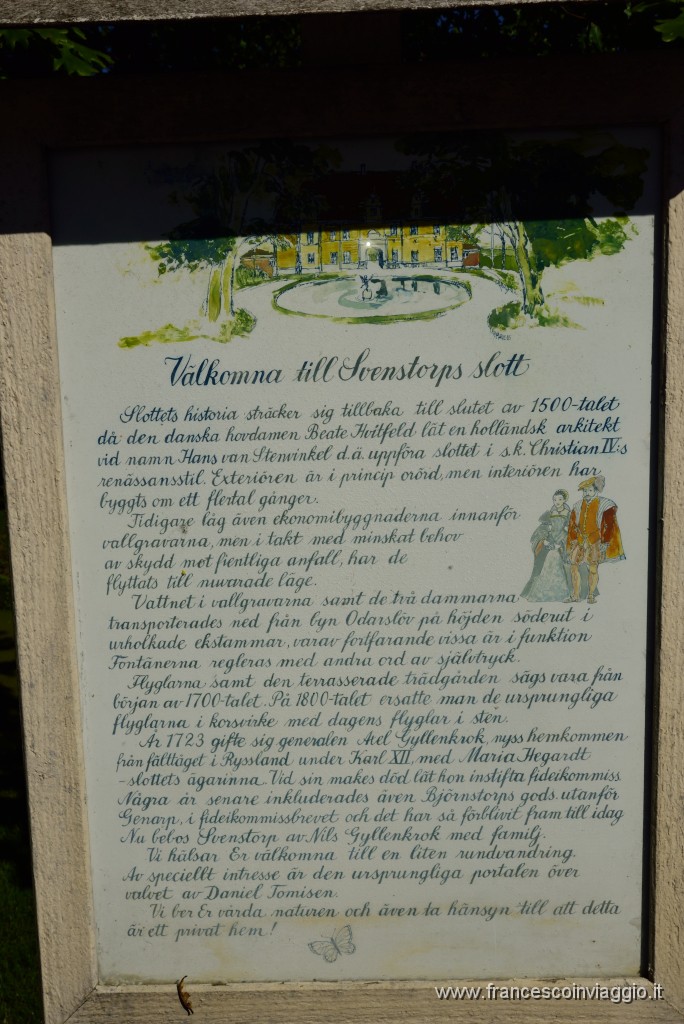 Välkomna till Svenstorps slott
Slottets historia sträcker sig tillbaka till slutet av 1500-talet
då den danska hovdamen Beate Hvitfeld lät en holländsk arkitekt
vid namn Hans van Stenwinkel d.ä. uppföra slottet i s.k. Christian IV:s
renässansstil. Exteriören är i princip orörd, men interiören har
byggts om ett flertal gånger.
Tidigare låg även ekonomibyggnaderna innanför
vallgravarna, men i takt med minskat behov
av skydd mot fientliga anfall, har de
flyttats till nuvarade läge.
Vattnet i vallgravarna samt de två dammarna
transporterades ned från byn Odarslöv på höjden söderut i
urholkade ekstammar, varav fortfarande vissa är i funktion
Fontänerna regleras med andra ord av självtryck.
Flyglarna samt den terrasserade trädgården sägs vara från
början av 1700-talet. På 1800-talet ersatte man de ursprungliga
flyglarna i korsvirke med dagens flyglar i sten.
År 1723 gifte sig generalen Axel Gyllenkrok, nyss hemkommen
från fälttåget i Ryssland under Karl XII, med Maria Hegardt
-slottets ägarinna. Vid sin makes död lät hon instifta fideikommiss
Några år senare inkluderades även Björnstorps gods, utanför
Genarp, i fideikommissbrevet och det har så förblivit fram till idag
Nu bebos Svenstorp av Nils Gyllenkrok med familj.
Vi hälsar Er välkomna till en liten rundvandring.
Av speciellt intresse är den ursprungliga portalen över
valvet av Daniel Tomisen.
Vi ber Er vårda naturen och även ta hänsyn till att detta
är ett privat hem!
www.francescoinviaggio.it